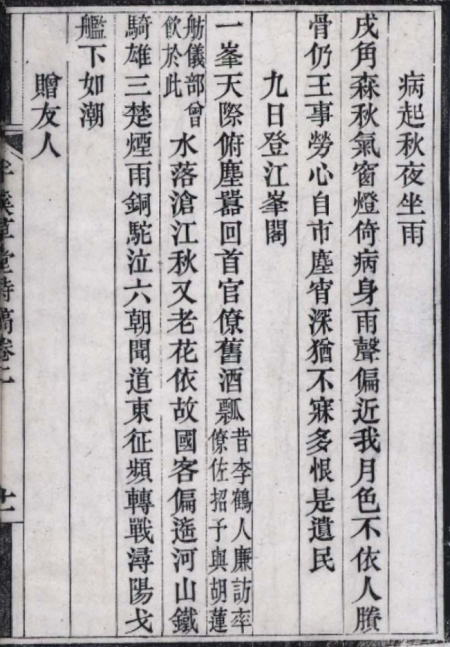 病起秋夜坐雨
戍角森秋氣窗燈倚病身雨聲偏近我月色不依人賸
骨仍王事勞心自市塵宵深猶不寐多恨是遺民
九日登江峯閣
一峯天際俯塵囂回首官僚舊酒瓢昔李鶴人廉訪率
僚佐招予與胡蓮
舫儀部曾
飲於此
水落滄江秋又老花依故國客偏遙河山鐵
騎雄三楚煙雨銅駝泣六朝聞道東征頻轉戰潯陽戈
艦下如潮
贈友人
草堂詩稿卷
十一